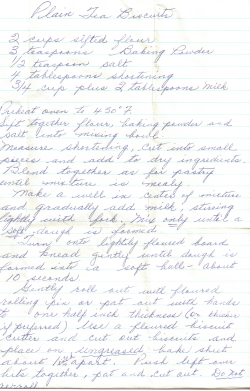 Plain Tea Biscuits
2 cups sifted flour
3 teaspoons Baking Powder
1/2 teaspoon salt
4 tablespoons shortening
3/4 cup plus 2 tablespoons milk
Preheat oven to 450°F
Sift together flour, baking powder and
salt into mixing bowl.
Measure shortening, cut into small
pieces and add to dry ingredients.
Blend together as for pastry
until mixture is mealy.
Make a well in center of mixture
and gradually add milk, stirring
lightly with fork. Mix only until a
soft dough is formed.
Turn onto lightly floured board
and knead gently until dough is
formed into a soft ball - about
10 seconds
Gently roll out with floured
rolling pin or pat out with hands
to one half inch thickness (or thicker
if preferred) Use a floured biscuit
cutter and cut out biscuits and
place on ungreased bake sheet
about apart. Push left over
bits together, pat and cut out. Do not